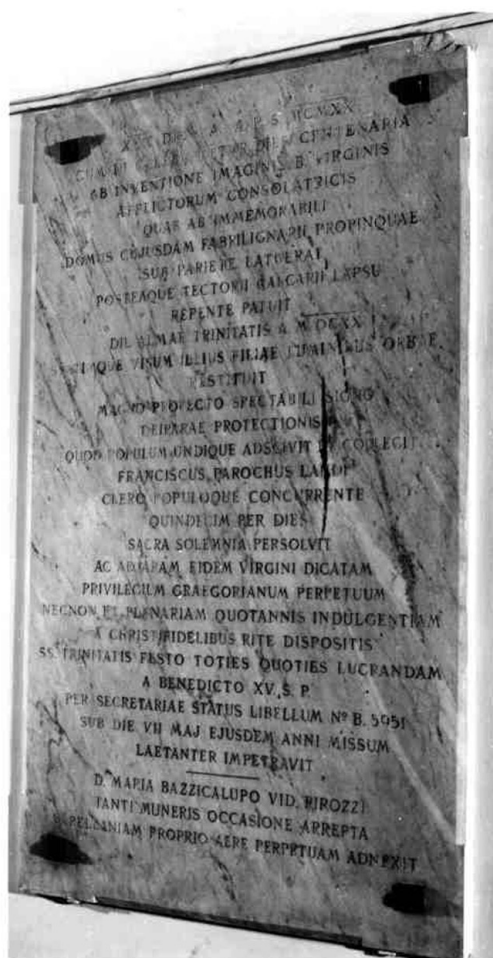 MCMXX
CENTENARIA
AB INVENTIONE IMAGINIS B. VIRGINIS
AFFLICTORUM CONSOLATRICIS
QUAE AB IMMEMORABILI
DOMUS CUJUSDAM FABRILIGNARII PROPINQUAE
SUB PARIETE LATUERAT
POSTEAQUE TECTORII CALCARII LAPSU
REPENTE PATUIT
DIE ALMAE TRINITATIS A. MDCCXX
VISUM ILLIUS FILIAE LUMINIBUS ORBAE
RESTITUIT
MAGNO PROFECTO SPECTABILI SIGNO
DEIPARAE PROTECTIONIS
QUOD POPULUM UNDIQUE ADSCIVIT ET COLLEGIT
FRANCISCUS PAROCHUS
CLERO POPULOQUE CONCURRENTE
QUINDECIM PER DIES
SACRA SOLEMNIA PERSOLVIT
AC AD ARAM EIDEM VIRGINI DICATAM
PRIVILEGIUM GRAEGORIANUM PERPETUUM
NECNON ET PLENARIAM QUOTANNIS INDULGENTIAM
A CHRISTIFIDELIBUS RITE DISPOSITIS
SS. TRINITATIS FESTO TOTIES QUOTIES LUCRANDAM
A BENEDICTO XV. S. P.
PER SECRETARIAE STATUS LIBELLUM Nº B. 5951
SUB DIE VII MAJ EJUSDEM ANNI MISSUM
LAETANTER IMPETRAVIT
D. MARIA BAZZICALUPO VID. PIROZZI
TANTI MUNERIS OCCASIONE ARREPTA
PROPRIO AERE PERPETUAM ADNEXIT